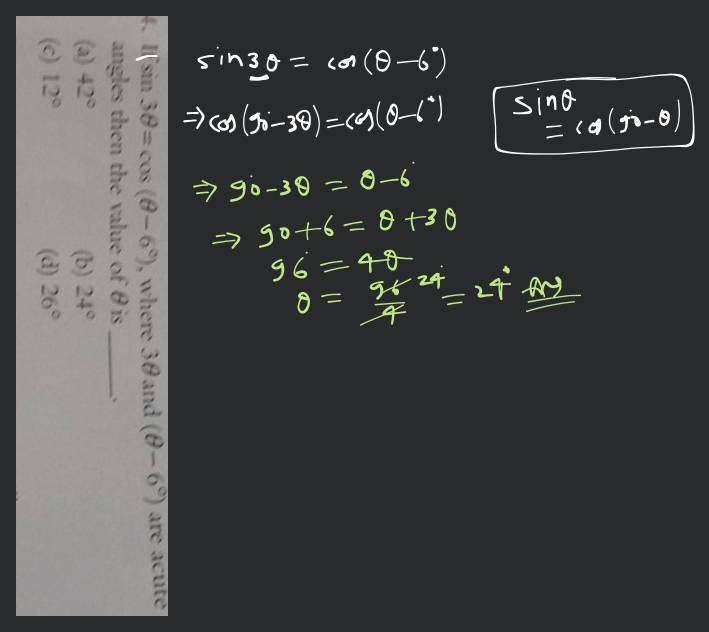 4. If sin 3θ = cos (θ – 6°), where 3θ and (θ – 6°) are acute
angles then the value of θ is ______.
(a) 42°
(b) 24°
(c) 12°
(d) 26°
sin3θ = cos (θ–6°)
⇒ cos (90–3θ) = cos (θ–6°)
sinθ
= cos (90–θ)
⇒ 90–3θ = θ–6
⇒ 90+6 = θ+3θ
96 = 4θ
θ = 96/4 24 = 24° Ans